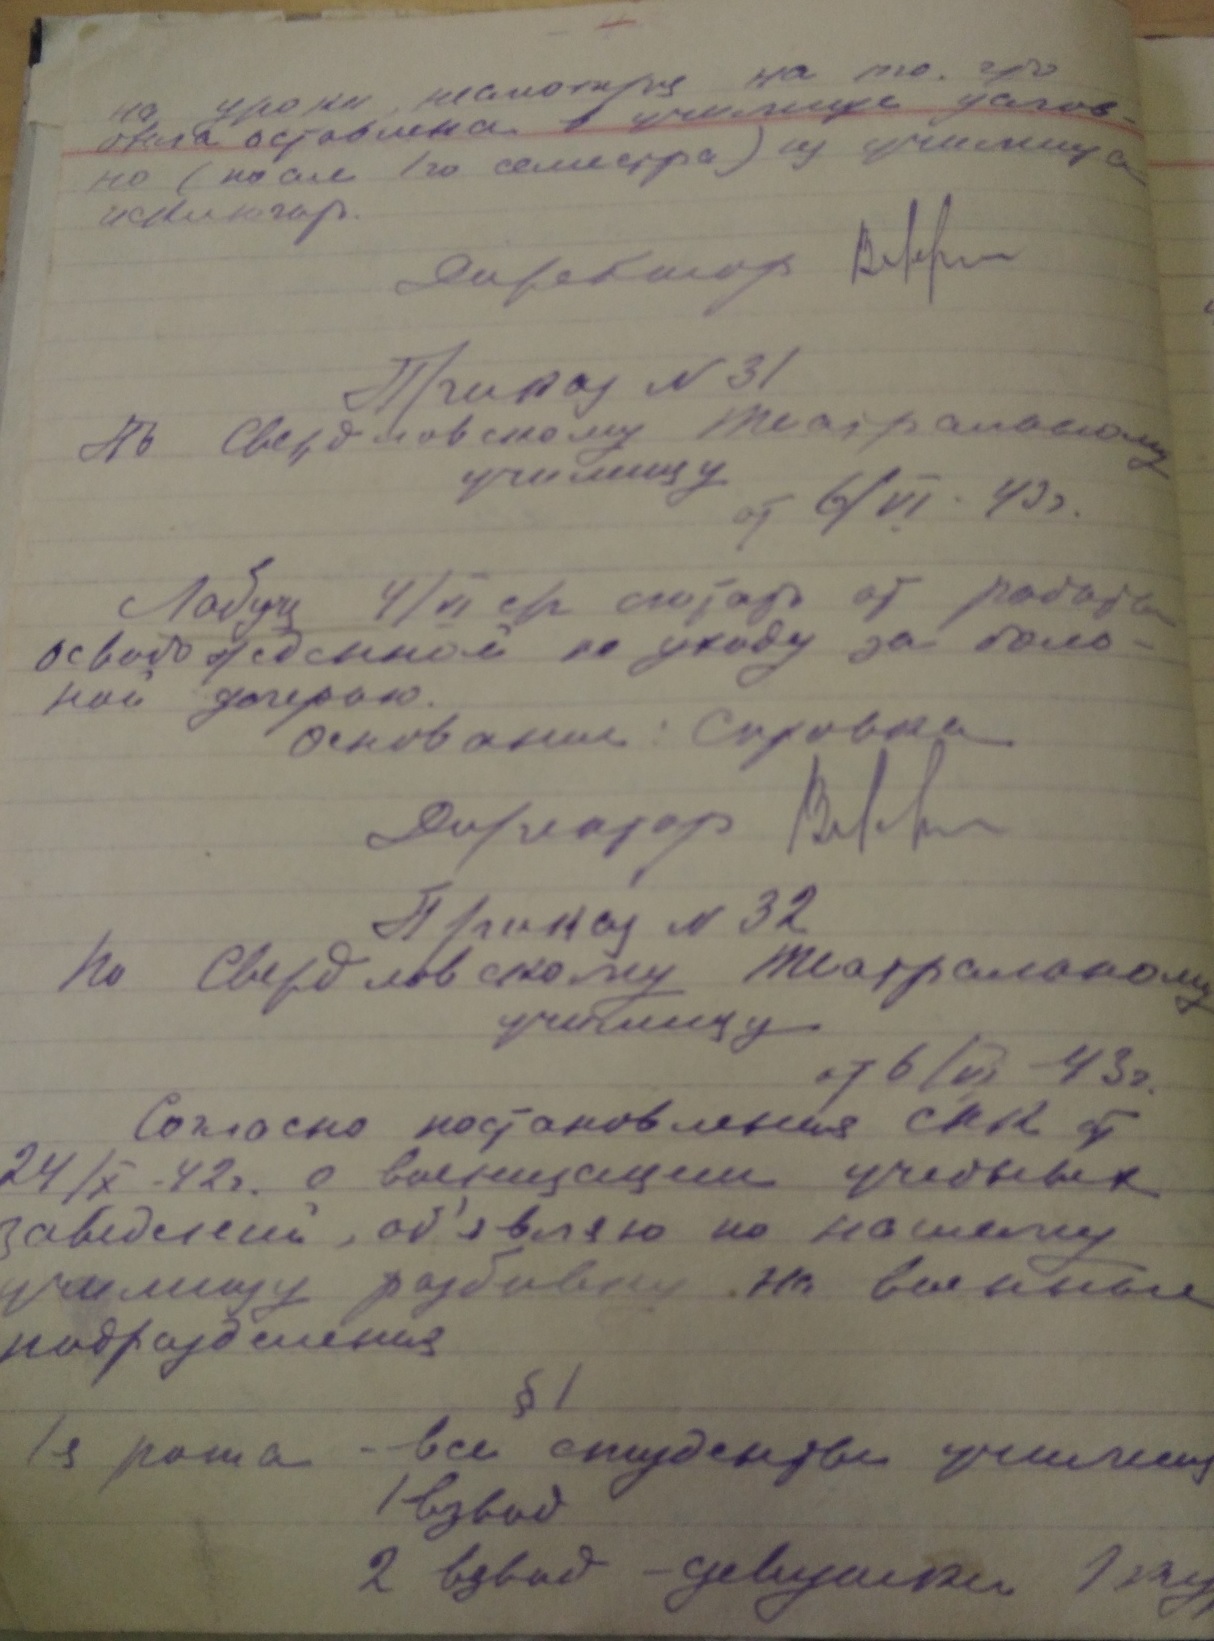 на уроки, несмотря на то, что
была оставлена в училище услов-
но (после 1го семестра) из училища
исключар.
Директор
Приказ N 31
По Свердловскому Театральному
училищу
от 6/VI - 43г.
Лабуч 4/VI с/г считать от работы
освобожденной по уходу за боль-
ной дочерью.
Основание: Справка
Директор
Приказ N 32
По Свердловскому Театральному
училищу
от 6/VI - 43г.
Согласно постановления СНК от
24/X - 42г. о военизации учебных
заведений, об'являю по нашему
училищу разбивку на военные
подразделения
§ 1
1я рота - все студенты училищ
1 взвод
2 взвод - девушки 1 кур